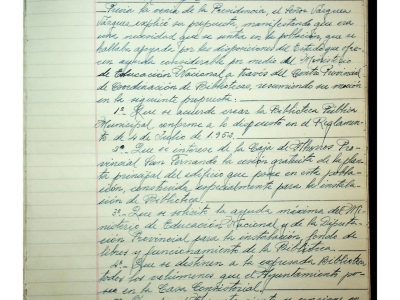 Previa la venia de la Presidencia, el Señor Vázquez
Vázquez explicó su propuesta, manifestando que era
una necesidad que se sentía en la población, que se
hallaba apoyada por las disposiciones del Estado que ofre-
cen ayuda considerable por medio del Ministerio
de Educación Nacional a través del Centro Provincial
de Coordinación de Bibliotecas, resumiendo su moción
en la siguiente propuesta:
1º Que se acuerde crear la Biblioteca Pública
Municipal conforme a lo dispuesto en el Reglamen-
to de 4 de Julio de 1952.
2º Que se interese de la Caja de Ahorros Pro-
vincial San Fernando la cesión gratuita de la plan-
ta principal del edificio que posee en esta pobla-
ción, construida especialmente para la instala-
ción de Biblioteca.
3º Que se solicite la ayuda máxima del Mi-
nisterio de Educación Nacional y de la Diputa-
ción Provincial para la instalación, fondo de
libros y funcionamiento de la Biblioteca.
4º Que se destinen a la expresada Biblioteca
todos los volúmenes que el Ayuntamiento po-
see en la Casa Consistorial.